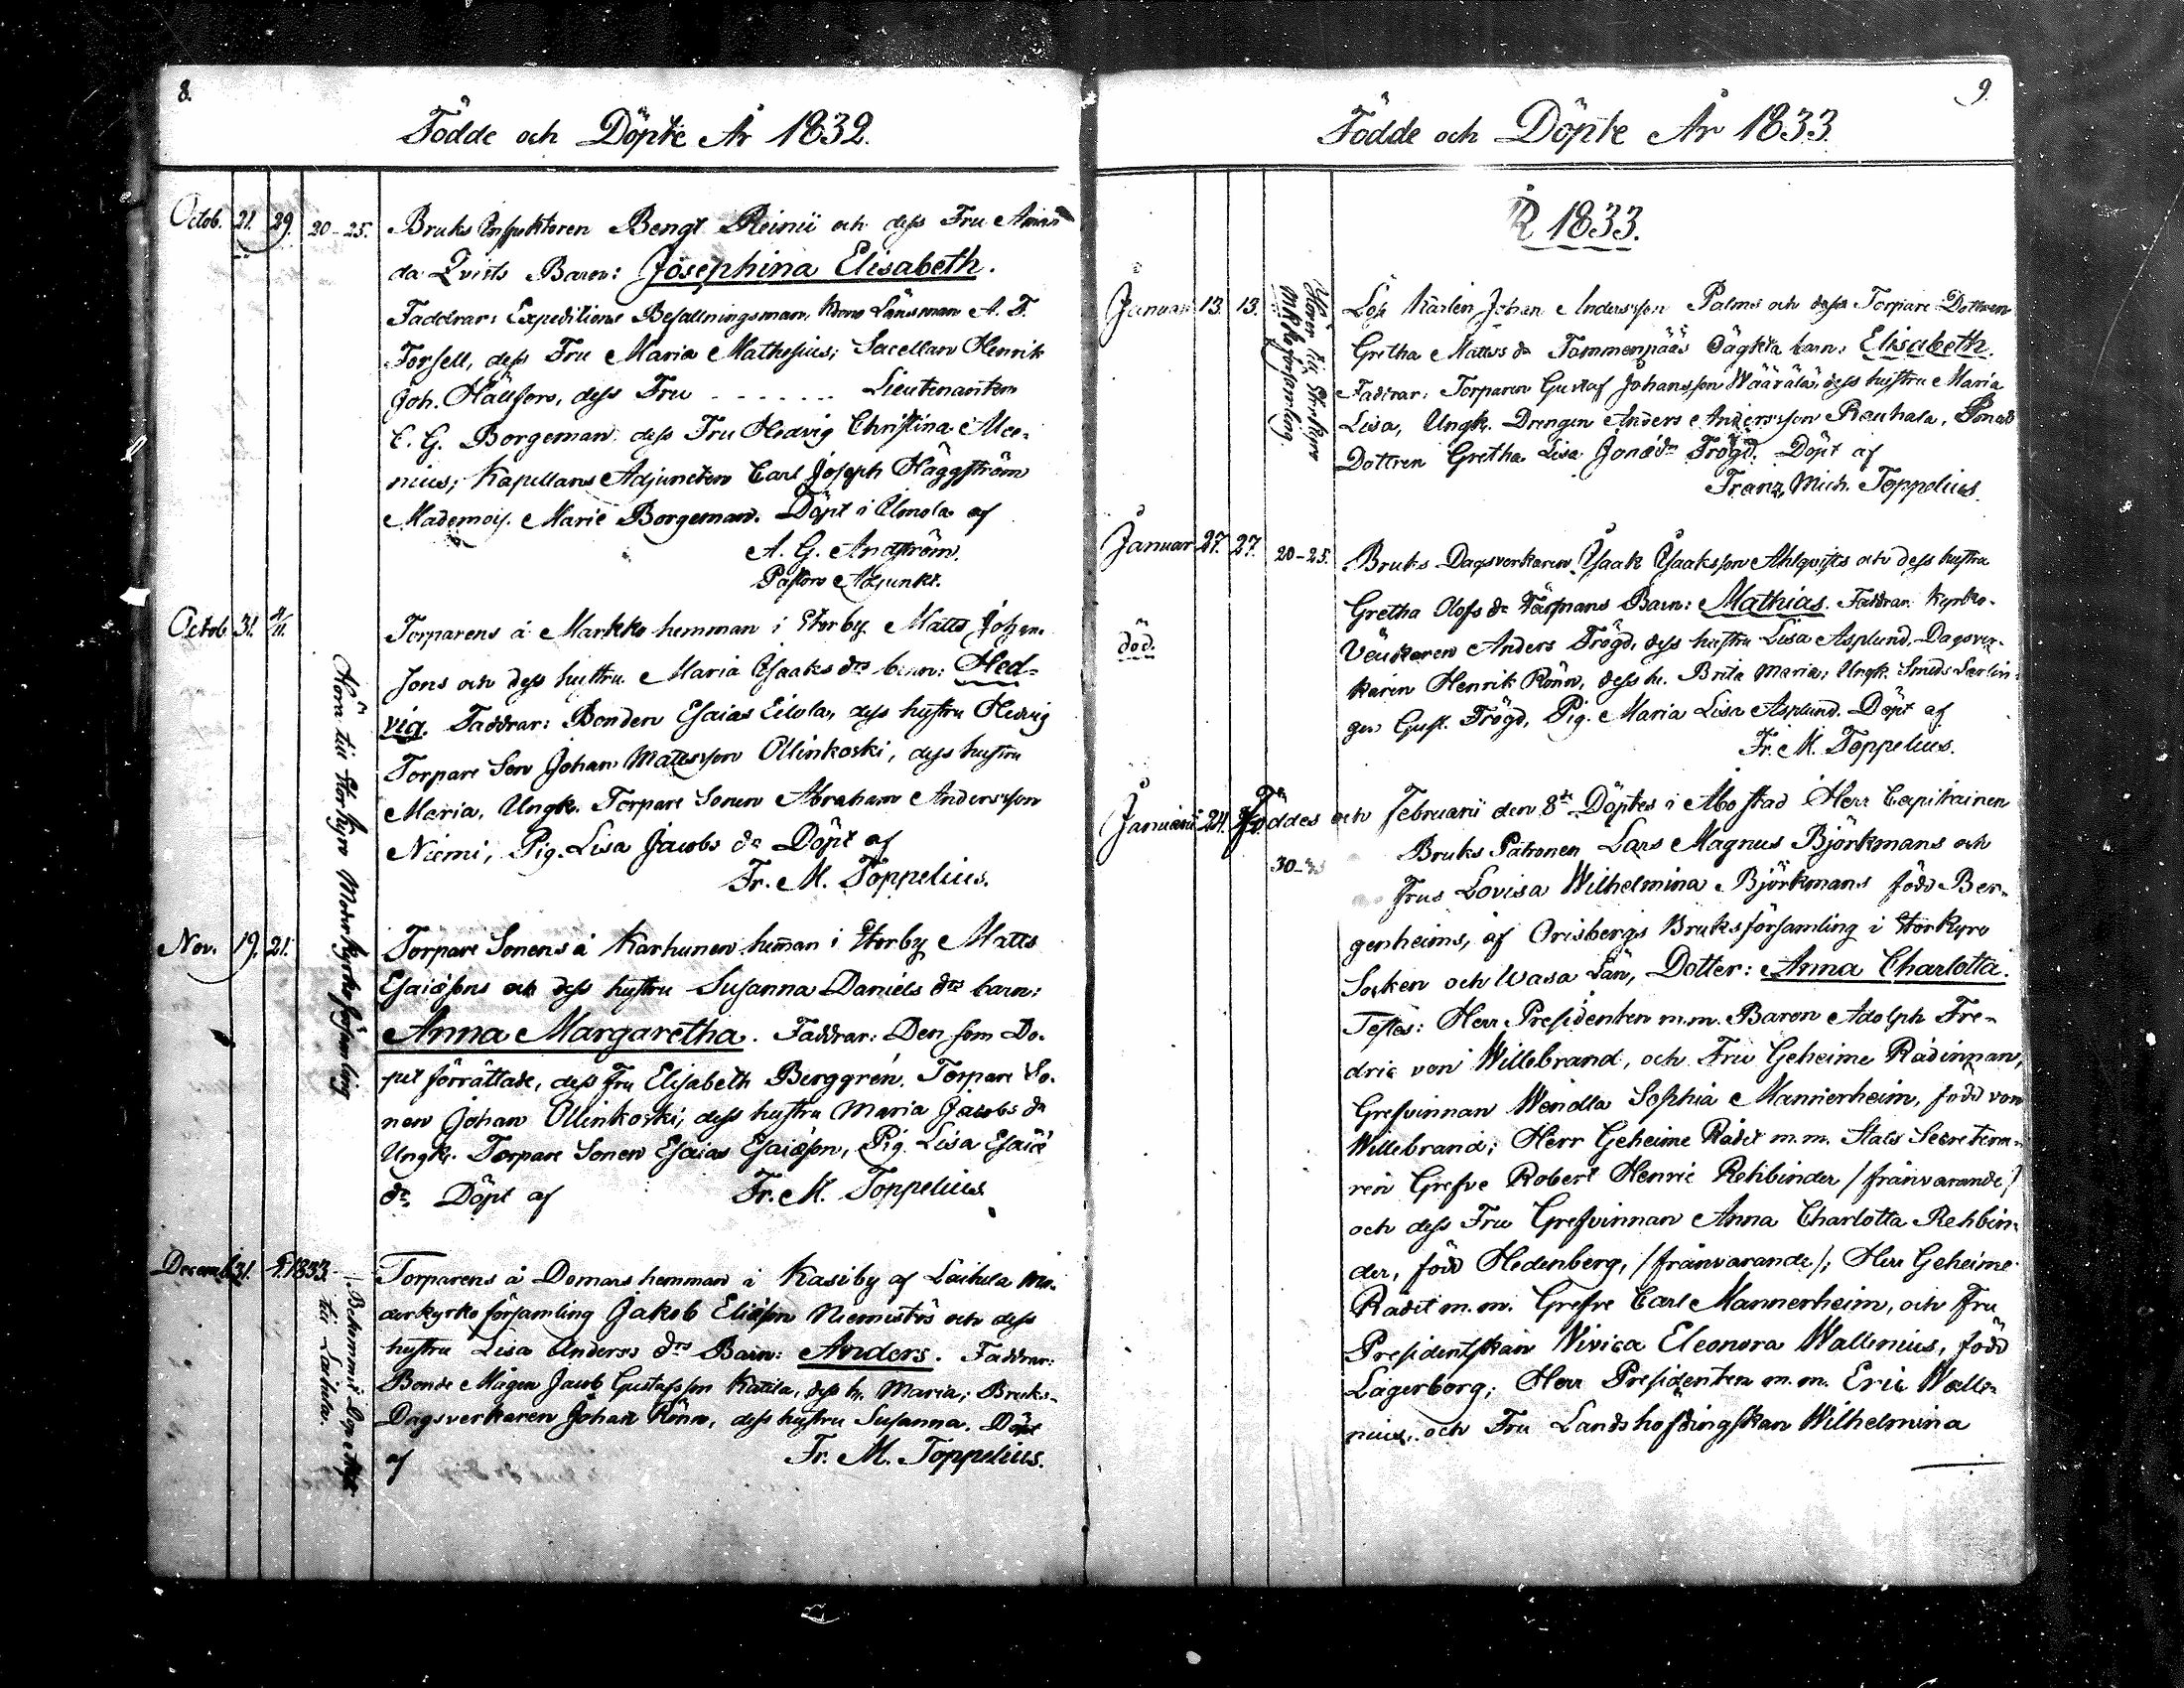 8.
Födde och Döpte År 1832.
Octob. 21. 29. 20-25. Bruks Inspektoren Bengt Reinii och dess Fru Aman
da Qvists Barn: Josephina Elisabeth.
Faddrar: Expeditions Befallningsman, Krono Länsman A. F.
Forsell, dess Fru Maria Mathesius; Sacellan Henrik
Joh. Hällfors, dess Fru ....... Lieutenanten
C. G. Borgeman, dess Fru Hedvig Christina Mee-
nius; Kapellans Adjuncten Carl Joseph Häggström
Mademois. Marie Borgeman. Döpt i Ilmola af
A. G. Andström.
Pastors Adjunkt.
Octob. 31. 4/11. Torparens å Markko hemman i Storby Matts Johan.
sons och dess hustru Maria Isaaks drs barn: Hed-
vig. Faddrar: Bonden Esaias Eilola, dess hustru Hedvig
Torpare Son Johan Mattsson Ollinkoski, dess hustru
Maria, Ungk. Torpare Sonen Abraham Andersson
Niemi, Pig. Lisa Jacobs dr Döpt af
Fr. M. Toppelius.
Höra till Storkyro Moderkyrko församling
Nov. 19. 21. Torpare Sonens å Karhunen heman i Storby Matts
Esaiæsons och dess hustru Susanna Daniels drs barn:
Anna Margaretha. Faddrar: Den som Do-
pet förrättade, dess Fru Elisabeth Berggrén. Torpare So-
nen Johan Ollinkoski, dess hustru Maria Jacobs dr
Ungk. Torpare Sonen Esaias Esaiæson, Pig. Lisa Esaiæ
dr Döpt af Fr. M. Toppelius.
Decemb. 31. 1833. Torparens å Domars hemman i Kasiby af Laihela Mo-
derkyrko församling Jakob Eliæson Niemistös och dess
hustru Lisa Anders drs Barn: Anders. Faddrar:
Bonde Mågen Jacob Gustafsson Kattila, dess h. Maria; Bruks-
Dagsverkaren Johan Rönn, dess hustru Susanna. Döpt
af Fr. M. Toppelius.
till Laihela.
9.
Födde och Döpte År 1833.
År 1833.
Januari 13. 13. Lös Karlen Johan Andersson Palms och dess Torpare Dottren
Gretha Matts dr Tommenpääs oägta barn: Elisabeth.
Faddrar: Torparen Gustaf Johansson Wäärälä, dess hustru Maria
Lisa, Ungk. Drengen Anders Andersson Rauhala, Smeds
Dottren Gretha Lisa Jonædr Frögd. Döpt af
Franz Mich. Toppelius.
Hörer till Storkyro
Moderkyrkoförsamling.
Januar 27. 27. 20-25. Bruks Dagsverkaren Isaak Isaaksson Ahlqvists och dess hustru
död.
Gretha Olofs dr Färsmans Barn: Mathias. Faddrar: Kyrko-
Väktaren Anders Frögd, dess hustru Lisa Asplund, Dagsver-
karen Henrik Rönn, dess h. Brita Maria; Ungk. Smeds Lærlin-
gen Gust. Frögd, Pig. Maria Lisa Asplund. Döpt af
Fr. M. Toppelius.
Januarii 24. Föddes och Februarii den 8de Döptes i Åbo stad Herr Capitainen
30-35 Bruks Patronen Lars Magnus Björkmans och
Frus Lovisa Wilhelmina Björkmans född Ber-
genheims, af Orisbergs Bruksförsamling i Storkyro
Socken och Wasa Län, Dotter: Anna Charlotta.
Testes: Herr Presidenten m.m. Baron Adolph Fre-
dric von Willebrand, och Fru Geheime Rådinnan,
Grefvinnan Wendla Sophia Mannerheim, född von
Willebrand; Herr Geheime Rådet m.m. Stats Secretera-
ren Grefve Robert Henric Rehbinder /frånvarande/
och dess Fru Grefvinnan Anna Charlotta Rehbin-
der, född Hedenberg, /frånvarande/; Herr Geheime
Rådet m.m. Grefve Carl Mannerheim, och Fru
Presidentskan Vivica Eleonora Wallenius, född
Lagerborg; Herr Presidenten m.m. Eric Walle-
nius, och Fru Landshöfdingskan Wilhelmina